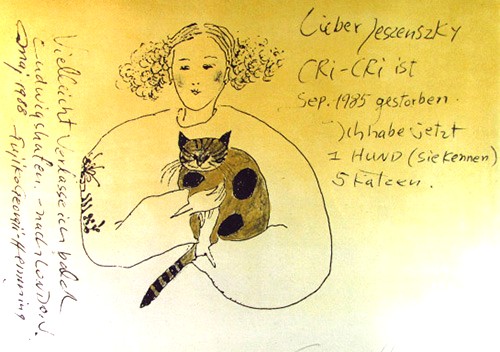 Lieber Jeszenszky
CRi-CRi ist
Sep. 1985 gestorben.
Ich habe jetzt
1 HUND (sie kennen)
5 Katzen.
Vielleicht Verlasse ich bald
Ludwigshafen. - nach LONDON.
maj 1988 - Fujiko Georgii-Hemming